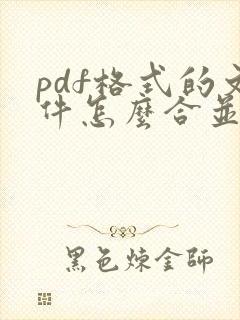 pdf格式的文
件怎麼合並
黑色煉金師